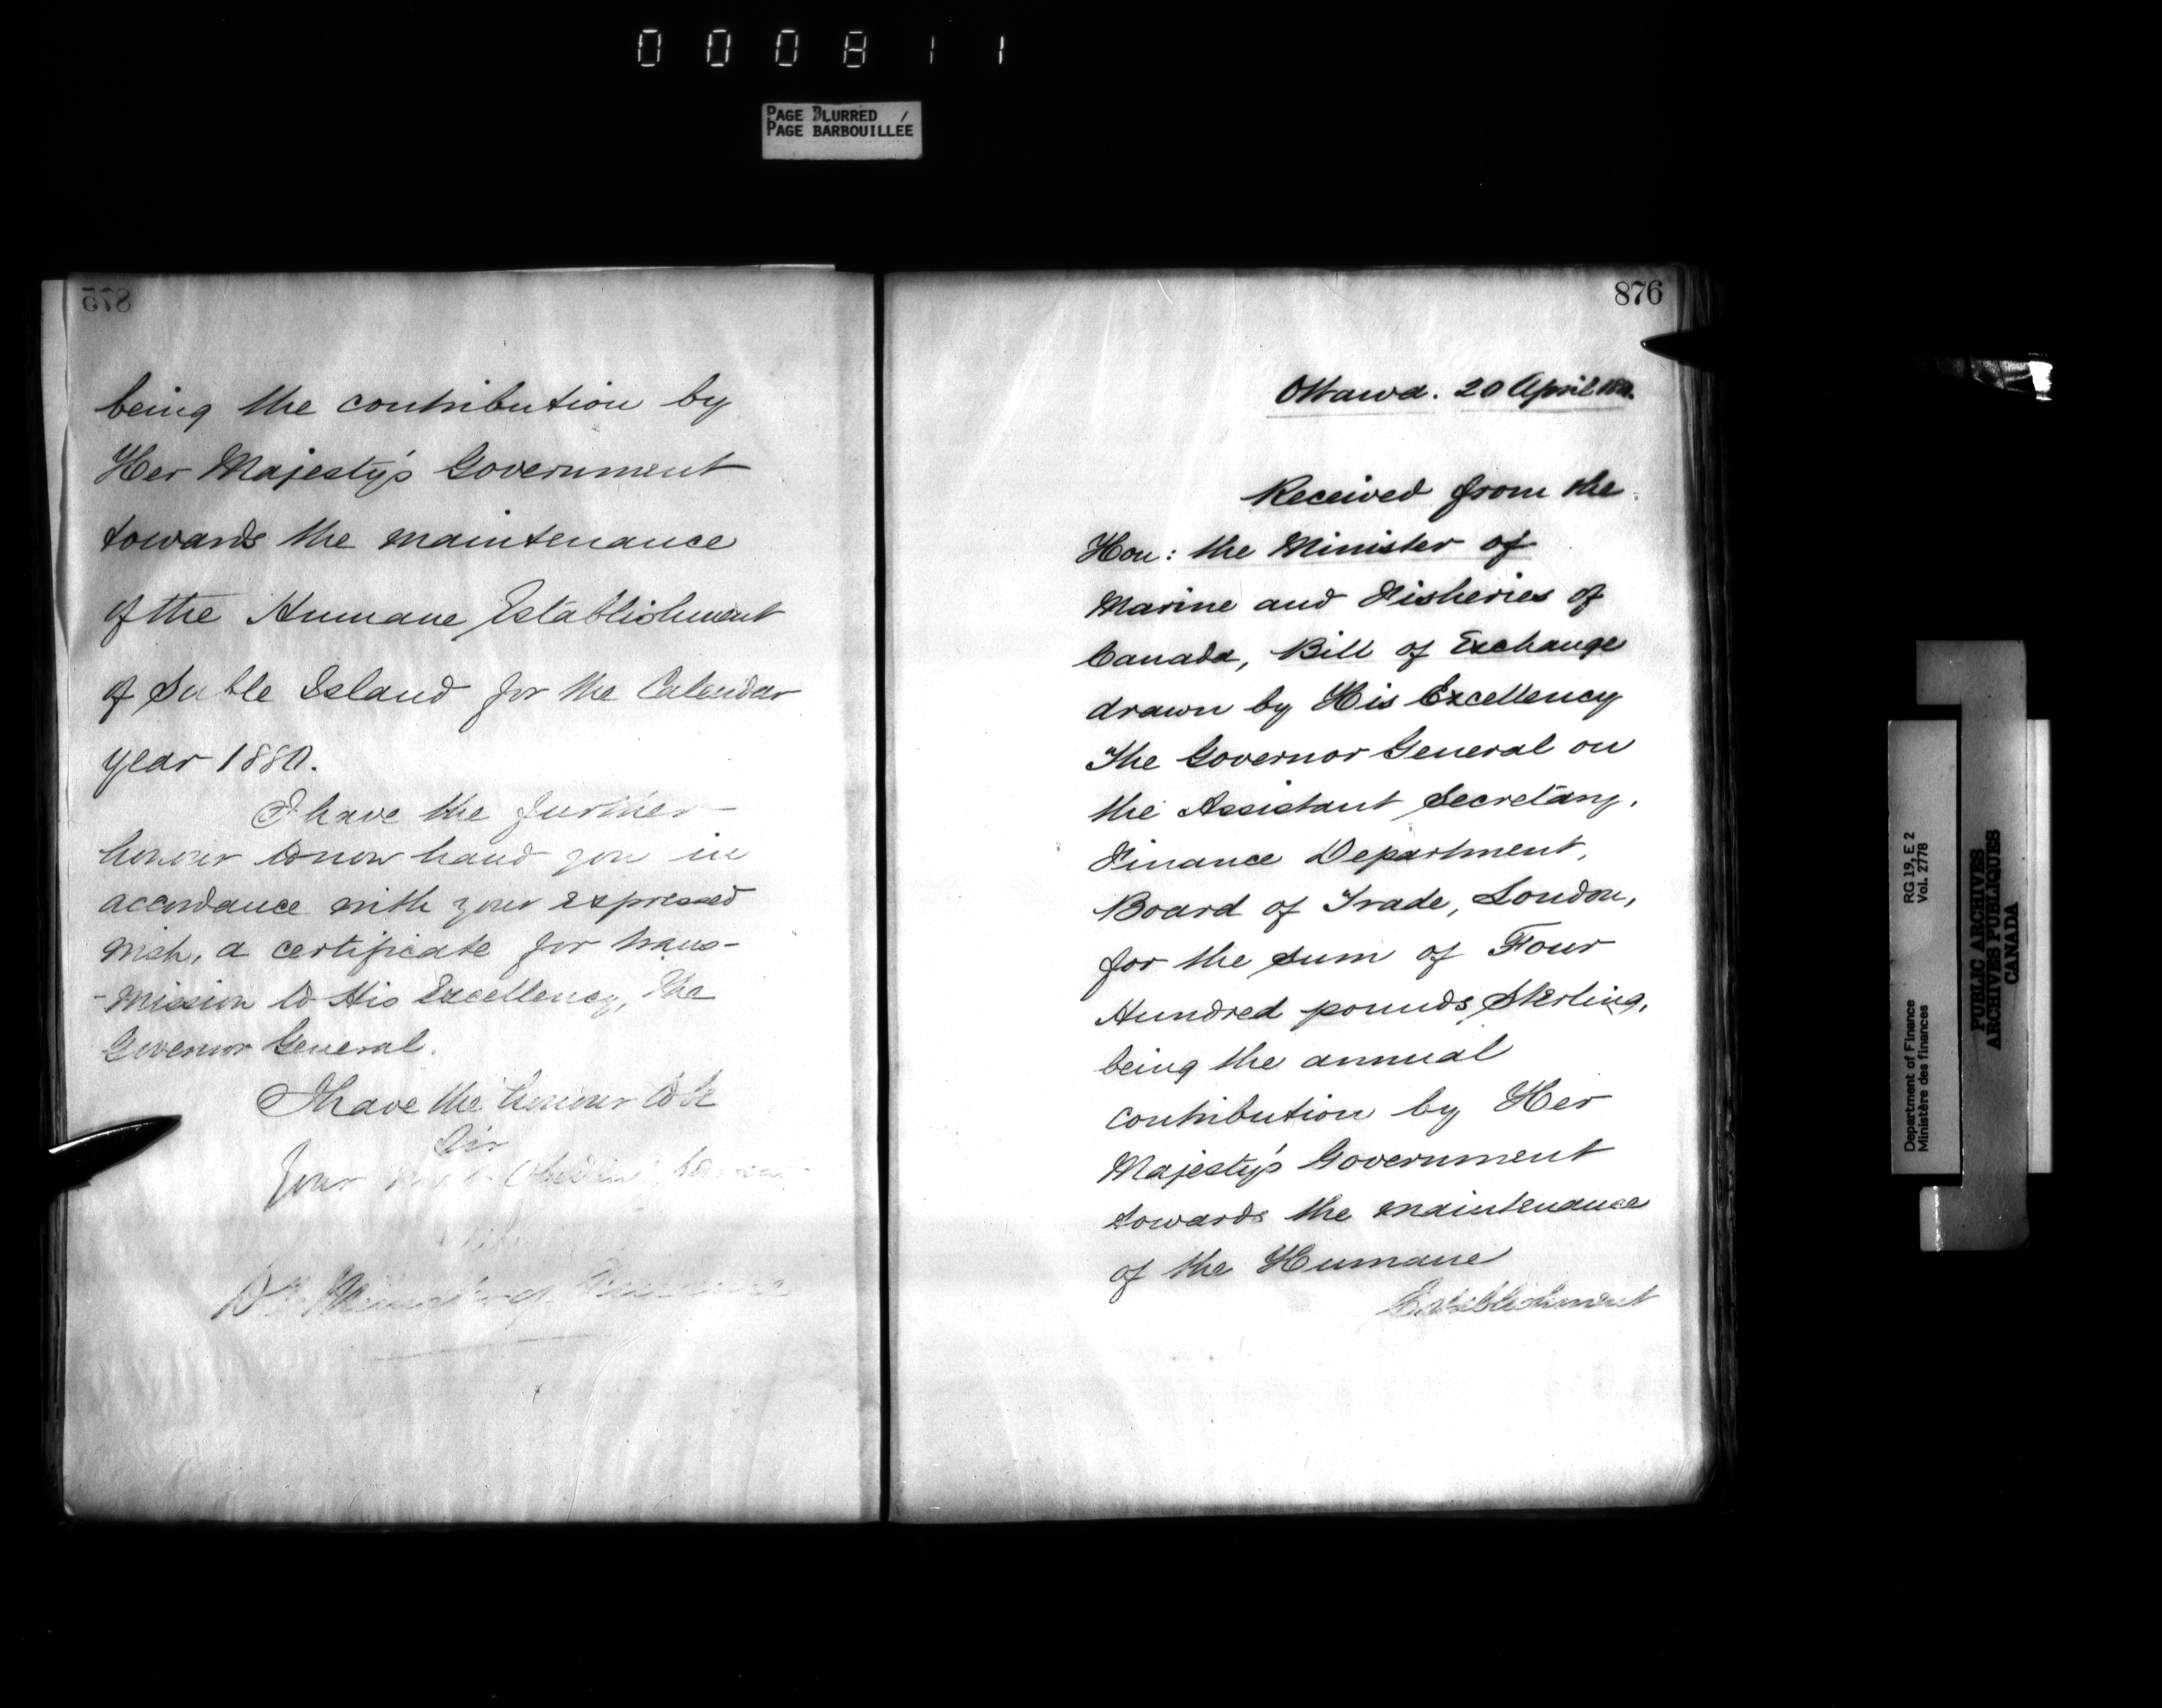 000811
PAGE BLURRED /
PAGE BARBOUILLÉE
875
being the contribution by
Her Majesty's Government
towards the maintenance
of the Humane Establishment
of Sable Island for the Calendar
year 1880.
I have the further
honour to now hand you in
accordance with your expressed
wish, a certificate for trans-
-mission to His Excellency, the
Governor General.
I have the honour to be
Sir
Your Obedient Servant
876
Ottawa. 20 April
Received from the
Hon: the Minister of
Marine and Fisheries of
Canada, Bill of Exchange
drawn by His Excellency
The Governor General on
the Assistant Secretary,
Finance Department,
Board of Trade, London,
for the sum of Four
Hundred pounds Sterling,
being the annual
contribution by Her
Majesty's Government
towards the maintenance
of the Humane
Establishment
Department of Finance RG 19, E 2
Ministère des finances Vol. 2778
PUBLIC ARCHIVES
ARCHIVES PUBLIQUES
CANADA